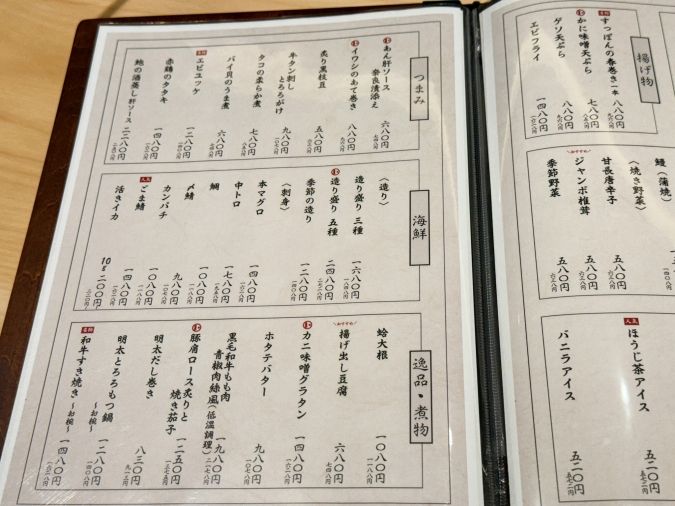 つまみ
あん肝ソース
奈良漬添え
六八〇円
イワシのあて巻き
八八〇円
炙り黒枝豆
五八〇円
牛タン刺し
とろろがけ
九八〇円
タコの柔らか煮
七八〇円
バイ貝のうま煮
六八〇円
エビユッケ
八八〇円
赤鶏のタタキ
一四八〇円
鮑の酒蒸し肝ソース
二二八〇円
海鮮
〈造り〉
造り盛り 三種
一六八〇円
造り盛り 五種
二四八〇円
季節の造り
一二八〇円
〈刺身〉
本マグロ
一四八〇円
中トロ
一七八〇円
鯛
一〇八〇円
〆鯖
九八〇円
カンパチ
一〇八〇円
人気
ごま鯖
一四八〇円
活きイカ
10g 二〇〇円
逸品・煮物
蛤大根
一〇八〇円
おすすめ
揚げ出し豆腐
六八〇円
カニ味噌グラタン
一四八〇円
ホタテバター
九八〇円
黒毛和牛もも肉
青椒肉絲風(低温調理)
一九八〇円
豚肩ロース炙りと
焼き茄子
一二五〇円
明太だし巻き
八三〇円
明太とろろもつ鍋
〜お椀〜
一二八〇円
名物
和牛すき焼き
〜お椀〜
一四八〇円
揚げ物
すっぽんの春巻き 一本
八八〇円
かに味噌天ぷら
七八〇円
ゲソ天ぷら
八八〇円
エビフライ
一四八〇円
鰻(蒲焼)
〈焼き野菜〉
甘長唐辛子
五八〇円
おすすめ
ジャンボ椎茸
五八〇円
季節野菜
五八〇円
人気
ほうじ茶アイス
五二〇円
バニラアイス
五二〇円